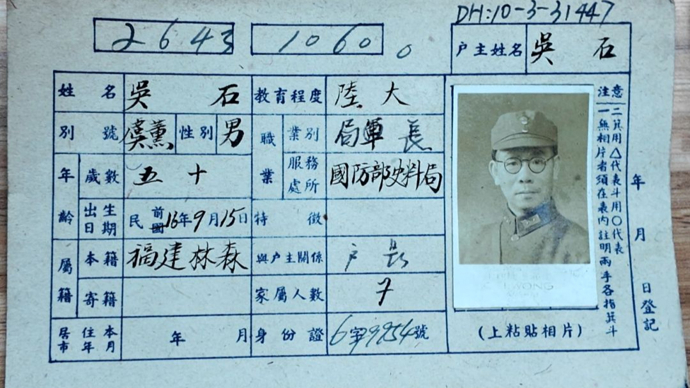 DH:10-3-31447
2643 1060 0
户主姓名 吳石
姓名 吳石 教育程度 陸大
別號 虞薰 性別 男 職業 業別 軍
年齡 歲數 五十 服務處所 國防部史料局
出生日期 民前16年9月15日 特徵
屬籍 本籍 福建林森 與戶主關係 户長
寄籍 家屬人數 7
居住本市年月 年 月 身份證 6字9954號
(上粘貼相片)
注意
一無相片者須在表內註明兩手各指箕斗
二箕用△代表斗用○代表
年 月 日登記